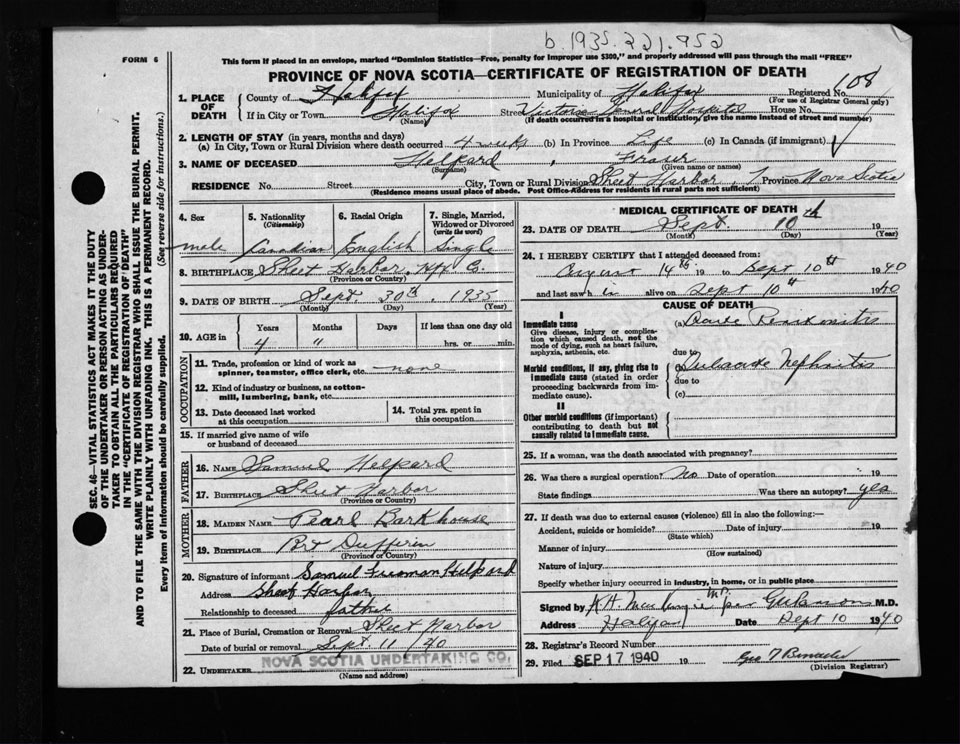 b.1935.221.952
FORM 6
This form if placed in an envelope, marked "Dominion Statistics—Free, penalty for improper use $300," and properly addressed will pass through the mail "FREE"
PROVINCE OF NOVA SCOTIA—CERTIFICATE OF REGISTRATION OF DEATH
108
1. PLACE OF DEATH
County of Halifax Municipality of Halifax Registered No.
(For use of Registrar General only)
If in City or Town Halifax Street Victoria General Hospital House No.
(Name) (If death occurred in a hospital or institution, give the name instead of street and number)
2. LENGTH OF STAY (in years, months and days)
(a) In City, Town or Rural Division where death occurred 4 wks (b) In Province Life (c) In Canada (if immigrant)
3. NAME OF DECEASED Helpard, Fraser
(Surname) (Given name or names)
RESIDENCE No. Street City, Town or Rural Division Sheet Harbor, Province Nova Scotia
(Residence means usual place of abode. Post Office Address for residents in rural parts not sufficient)
SEC. 46—VITAL STATISTICS ACT MAKES IT THE DUTY
OF THE UNDERTAKER OR PERSON ACTING AS UNDER-
TAKER TO OBTAIN ALL THE PARTICULARS REQUIRED
IN THE "CERTIFICATE OF REGISTRATION OF DEATH"
AND TO FILE THE SAME WITH THE DIVISION REGISTRAR WHO SHALL ISSUE THE BURIAL PERMIT.
WRITE PLAINLY WITH UNFADING INK. THIS IS A PERMANENT RECORD.
Every item of information should be carefully supplied. (See reverse side for instructions.)
4. Sex 5. Nationality (Citizenship) 6. Racial Origin 7. Single, Married, Widowed or Divorced (write the word)
male Canadian English Single
8. BIRTHPLACE Sheet Harbor, Hfx. Co.
(Province or Country)
9. DATE OF BIRTH Sept. 30th, 1935
(Month) (Day) (Year)
10. AGE in Years Months Days If less than one day old
4 11 hrs. or min.
OCCUPATION
11. Trade, profession or kind of work as
spinner, teamster, office clerk, etc. none
12. Kind of industry or business, as cotton-
mill, lumbering, bank, etc.
13. Date deceased last worked at this occupation 14. Total yrs. spent in this occupation
15. If married give name of wife
or husband of deceased
FATHER
16. NAME Samuel Helpard
17. BIRTHPLACE Sheet Harbor
(Province or Country)
MOTHER
18. MAIDEN NAME Pearl Barkhouse
19. BIRTHPLACE Port Dufferin
(Province or Country)
20. Signature of informant Samuel Helpard
Address Sheet Harbor
Relationship to deceased father
21. Place of Burial, Cremation or Removal Sheet Harbor
Date of burial or removal Sept 11 /40
22. UNDERTAKER NOVA SCOTIA UNDERTAKING CO.
(Name and address)
MEDICAL CERTIFICATE OF DEATH
23. DATE OF DEATH Sept. 10th 1940
(Month) (Day) (Year)
24. I HEREBY CERTIFY that I attended deceased from:
August 14th 19 to Sept 10th 1940
and last saw h im alive on Sept 10th 1940
CAUSE OF DEATH
I
Immediate cause (a) Acute Peritonitis
Give disease, injury or complica-
tion which caused death, not the
mode of dying, such as heart failure,
asphyxia, asthenia, etc.
due to
Morbid conditions, if any, giving rise to
immediate cause (stated in order
proceeding backwards from im-
mediate cause).
(b) Subacute Nephritis
due to
(c)
II
Other morbid conditions (if important)
contributing to death but not
causally related to immediate cause.
25. If a woman, was the death associated with pregnancy?
26. Was there a surgical operation? No Date of operation 19
State findings Was there an autopsy? yes
27. If death was due to external causes (violence) fill in also the following:—
Accident, suicide or homicide? Date of injury 19
(State which)
Manner of injury
(How sustained)
Nature of injury
Specify whether injury occurred in industry, in home, or in public place
Signed by M.D.
Address Halifax Date Sept 10 1940
28. Registrar's Record Number
29. Filed SEP 17 1940 19
(Division Registrar)